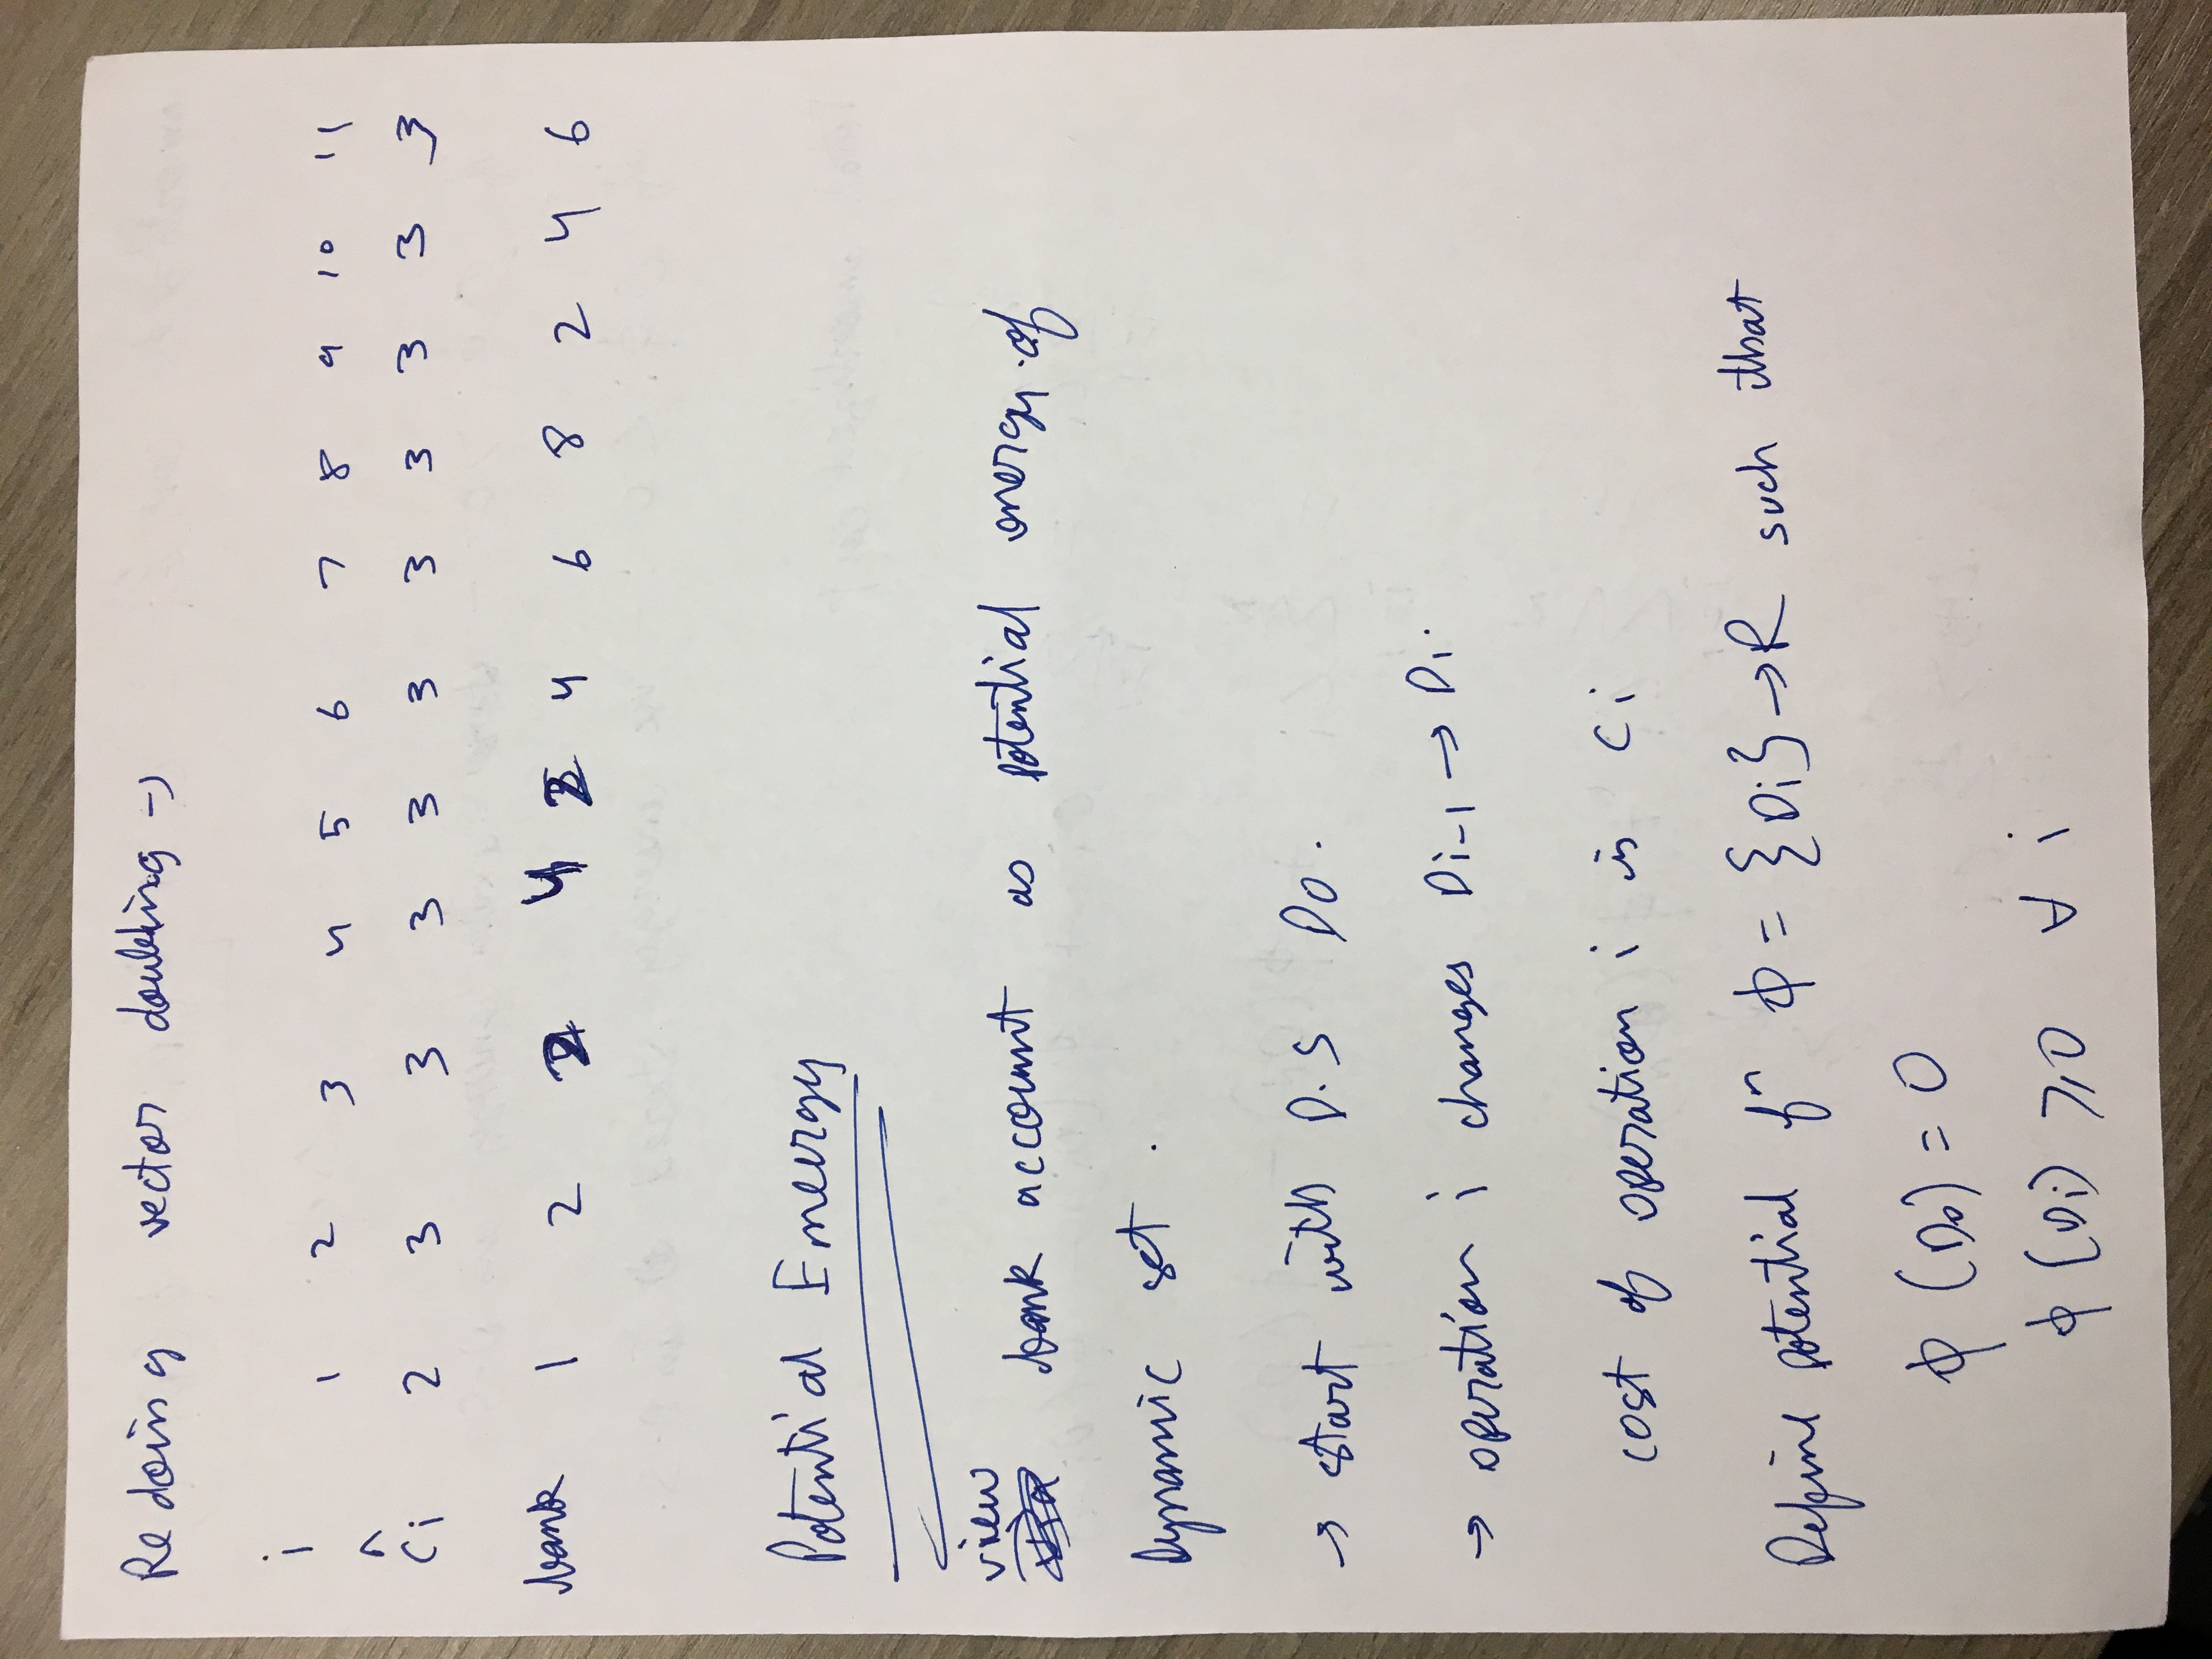 Redoing vector doubling →
i 1 2 3 4 5 6 7 8 9 10 11
ĉi 2 3 3 3 3 3 3 3 3 3 3
bank 1 2 2 4 2 4 6 8 2 4 6
Potential Emergy
view
bank account as potential energy of
Dynamic set.
→ start with D.S D0.
→ operation i changes Di-1 → Di.
cost of operation i is Ci
Define potential fn ϕ = {Di} → R such that
ϕ (D0) = 0
ϕ (Di) ≥ 0 ∀ i